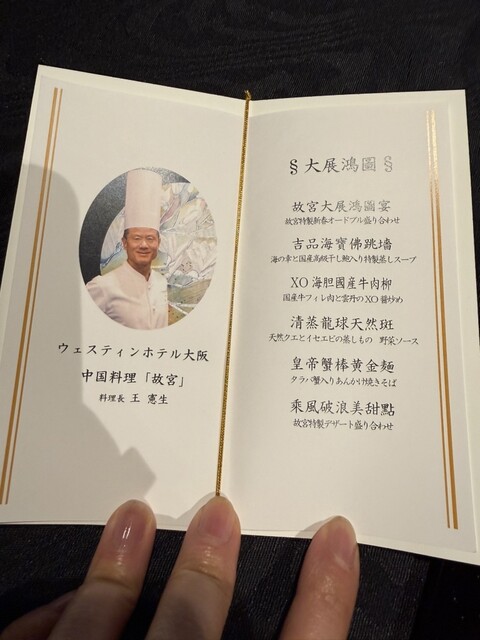 ウェスティンホテル大阪
中国料理「故宮」
料理長 王 憲生
§大展鴻圖§
故宮大展鴻圖宴
故宮特製新春オードブル盛り合わせ
吉品海寶佛跳墻
海の幸と国産高級干し鮑入り特製蒸しスープ
XO海胆國産牛肉柳
国産牛フィレ肉と雲丹のXO醤炒め
清蒸龍球天然斑
天然クエとイセエビの蒸しもの 野菜ソース
皇帝蟹棒黄金麺
タラバ蟹入りあんかけ焼きそば
乘風破浪美甜點
故宮特製デザート盛り合わせ